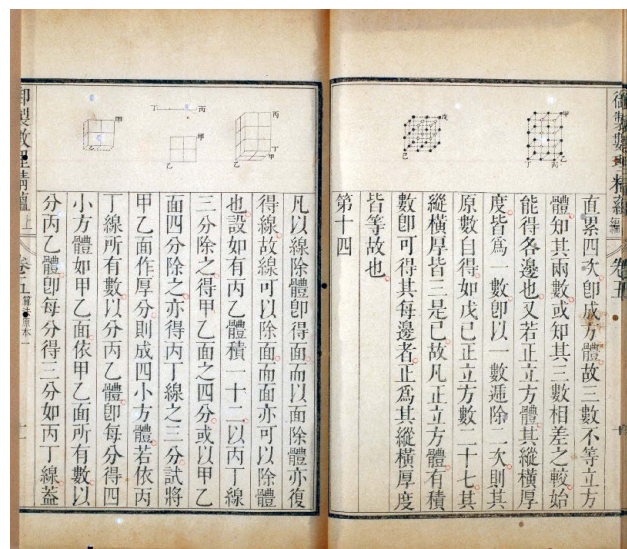 甲
乙
丁
戊
己
直累四次卽成方體故三數不等立方
體知其兩數或知其三數相差之較始
能得各邊也又若正立方體其縱橫厚
度皆爲一數卽以一數遞除二次則其
原數自得如戊己正立方數二十七其
縱橫厚皆三是已故凡正立方體有積
數卽可得其每邊者正爲其縱橫厚度
皆等故也
第十四
丙
丁
甲
乙
丁 丙
甲
乙
甲
乙
凡以線除體卽得面而以面除體亦復
得線故線可以除面而面亦可以除體
也設如有丙乙體積一十二以丙丁線
三分除之得甲乙面之四分或以甲乙
面四分除之亦得丙丁線之三分試將
甲乙面作厚分則成四小方體若依丙
丁線所有數以分丙乙體卽每分得四
小方體如甲乙面依甲乙面所有數以
分丙乙體卽每分得三分如丙丁線蓋
御製數理精蘊 上 卷五 算法原本